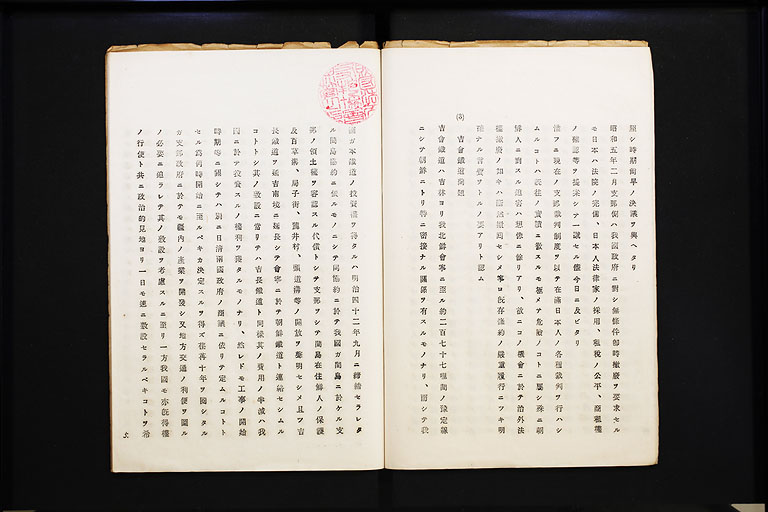 頗シ時期尚早ノ決議ヲ與ヘタリ
昭和五年二月支那側ハ我國政府ニ對シ無條件即時撤廢ヲ要求セル
モ日本ハ法院ノ完備、日本人法律家ノ採用、租税ノ公平、商租權
ノ確認等ヲ提案シテ一議セル儘今日ニ及ビタリ
惟フニ現在ノ支那裁判制度ヲ以テ在滿日本人ノ各種裁判ヲ行ハシ
ムルコトハ既往ノ實績ニ徴スルモ極メテ危險ノコトニ屬シ殊ニ朝
鮮人ニ對スル迫害ハ想像ニ餘リアリ、故ニコノ機會ニ於テ治外法
權撤廢ノ如キハ斷然撤回セシメ寧ロ既存條約ノ嚴重履行ニツキ明
確ナル言質ヲトルノ要アリト認ム
(3)
吉會鐵道問題
吉會鐵道ハ吉林ヨリ我北鮮會寧ニ至ル約二百七十七哩間ノ豫定線
ニシテ朝鮮ニトリ特ニ密接ナル關係ヲ有スルモノナリ、而シテ我
國ガ本鐵道ノ投資權ヲ得タルハ明治四十二年九月ニ締結セラレタ
ル間島協約ニ據ルモノニシテ同協約ニ於テ我國ガ間島ニ於ケル支
那ノ領土權ヲ容認スル代償トシテ支那ヲシテ間島在住鮮人ノ保護
及百草溝、局子街、龍井村、頭道溝等ノ開放ヲ聲明セシメ且フ吉
長鐵道ヲ延吉南境ニ延長シテ會寧ニ於テ朝鮮鐵道ト連絡セシムル
コトトシ其ノ敷設ニ當リテハ吉長鐵道ト同樣其ノ費用ノ半減ハ我
國ニ於テ投資スルノ權利ヲ獲タルモノナリ、然レドモ工事ノ開始
時期等ニ關シテハ別ニ日清兩國政府ノ商議ニ依リテ定ムルコトト
セル爲何時開始ニ至ルベキカ決定スルヲ得ズ荏苒十年ヲ閲シタル
ガ支那政府ニ於テモ疆内ノ產業ヲ開發シ又地方交通ノ利便ヲ圖ル
ノ必要ニ迫ラレテ其ノ敷設ヲ考慮スルニ至リ一方我國モ亦既得權
ノ行使ト共ニ政治的見地ヨリ一日モ速ニ敷設セラルベキコトヲ希